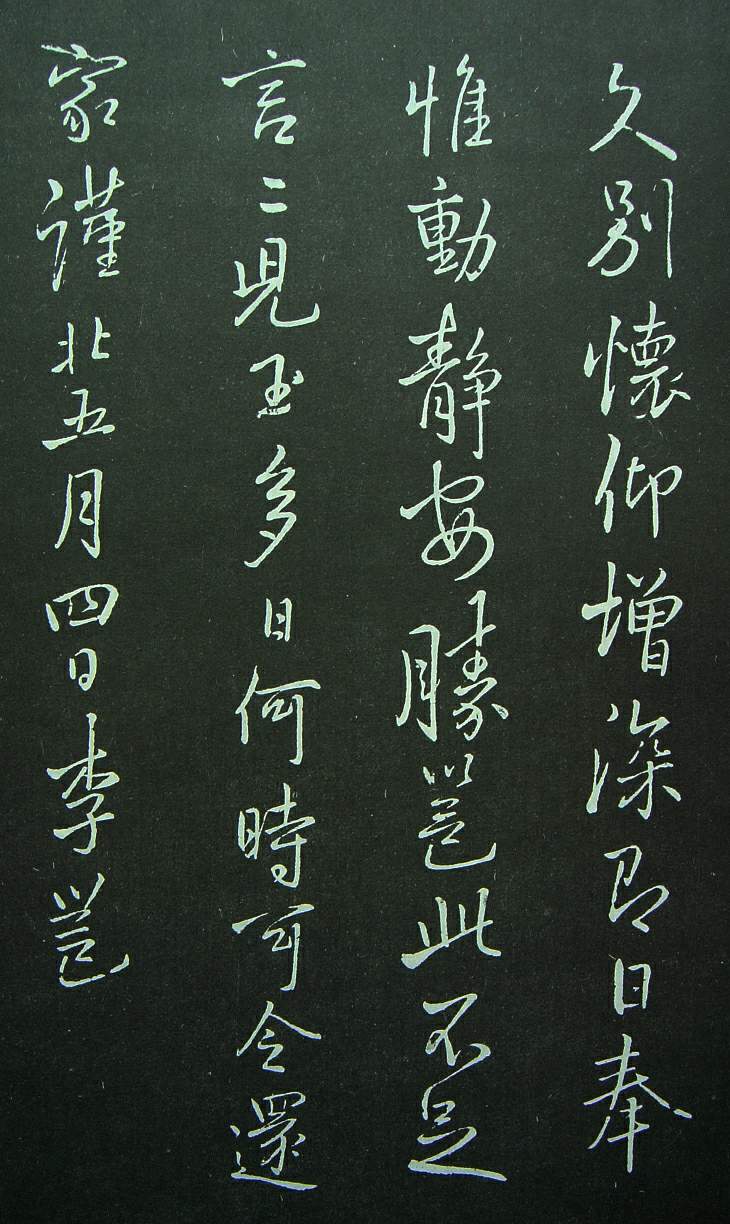 久別懷仰增深即日奉
惟動靜安勝邕此不足
言二兒玉多日何時可令還
家謹此五月四日李邕